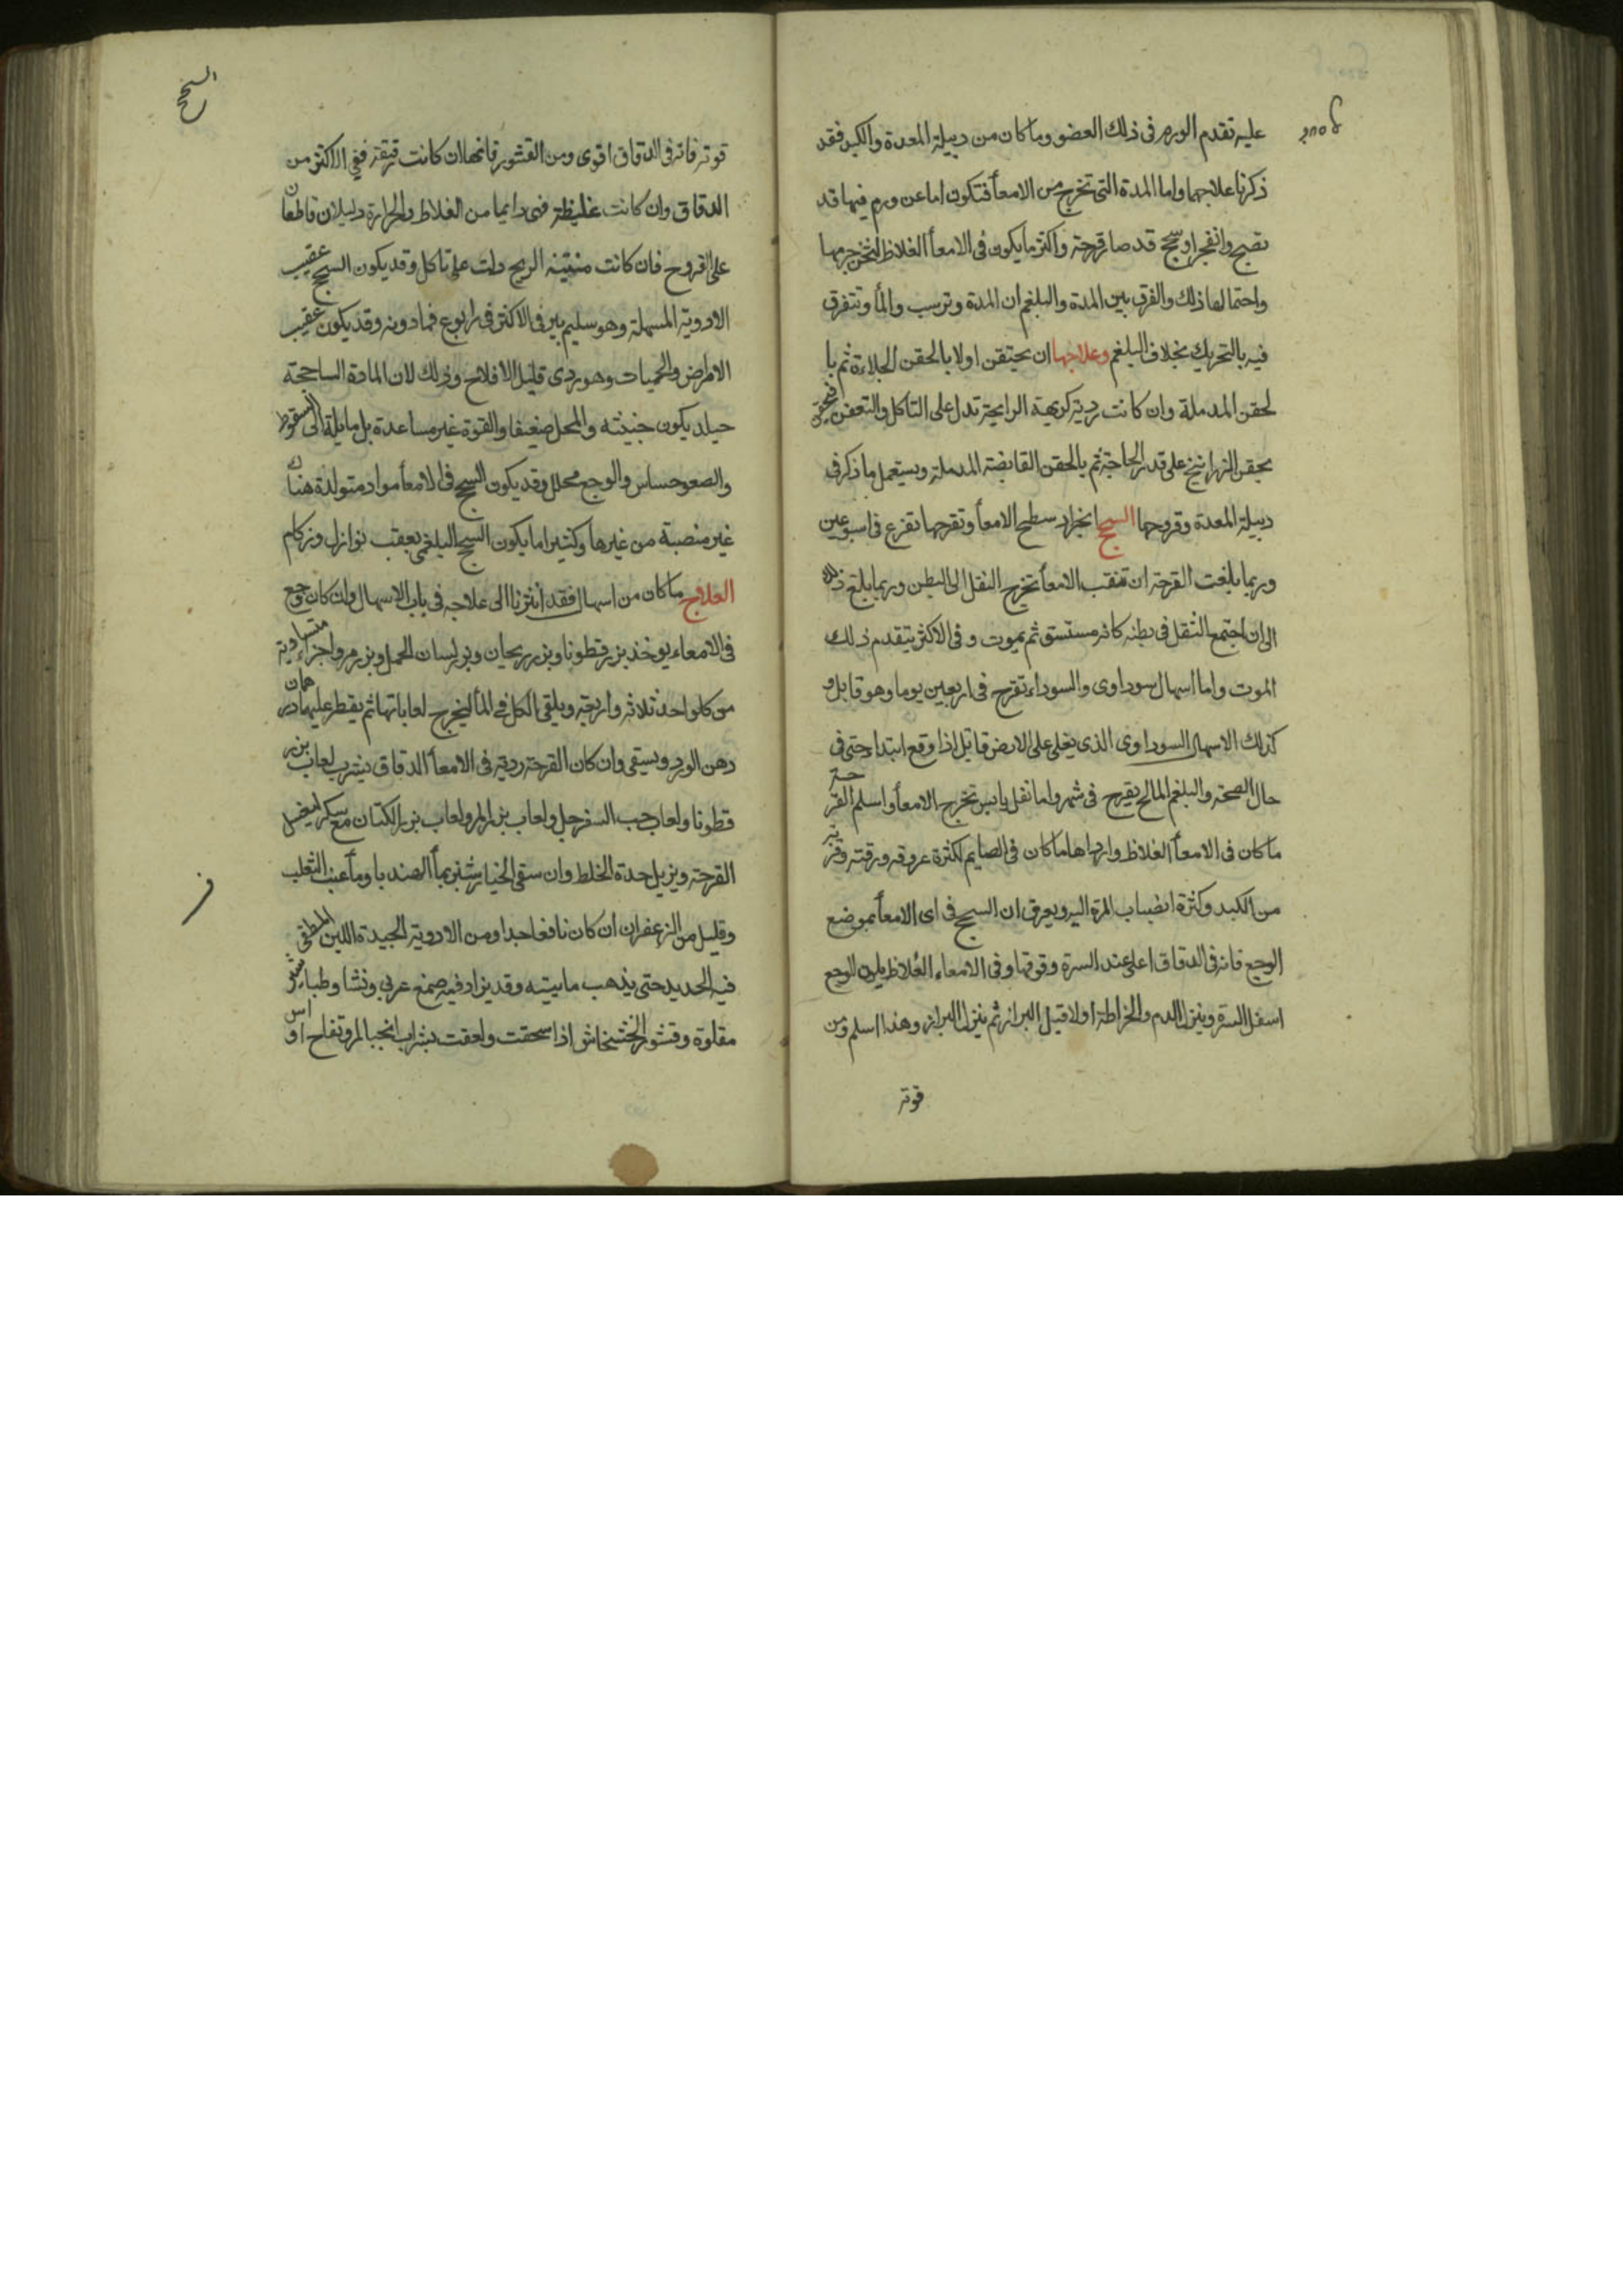 عليه تقدم الورم فى ذلك العضو وما كان من دبيلة المعدة والكبد فقد
ذكرنا علاجها واما المدة التى تخرج من الامعأ فتكون اما عن ورم فيها قد
نضج وانفجر او سحج قد صار قرحة واكثر ما يكون فى الامعأ الغلاظ لثخن جرمها
واحتمالها ذلك والفرق بين المدة والبلغم ان المدة وترسب والمأ وتتفرق
فيه بالتحريك بخلاف البلغم وعلاجها ان يحتقن اولا بالحقن الجلاءة ثم با
لحقن المدملة وان كانت ردية كريهة الرايحة تدل على التاكل والتعفن فيحقن
بحقن الزرانيخ على قدر الحاجة ثم بالحقن القابضة المدملة ويستعمل ما ذكر فى
دبيلة المعدة وقروحها السحج انجراد سطح الامعأ وتقرحها تفزع فى اسبوعين
وربما بلغت القرحة ان تثقب الامعأ تخرج الثفل الى البطن وربما بلغ ذلك
الى ان اجتمع الثفل فى بطنه كانه مستسق ثم يموت وفى الاكثر يتقدم ذلك
الموت واما اسهال سوداوى والسوداء تقرح فى اربعين يوما وهو قاتل و
كذلك الاسهال السوداوى الذى يغلى على الارض قاتل اذا وقع ابتدا حتى فى
حال الصحة والبلغم المالح يقرح فى شهر واما ثفل يابس تخرج الامعأ واسلم القرحة
ما كان فى الامعأ الغلاظ وارداها ما كان فى الصايم لكثرة عروقه ورقته وقربه
من الكبد وكثرة انصباب المرة اليه ويعرف ان السحج فى اى الامعأ بموضع
الوجع فانه فى الدقاق اعلى عند السرة وفوقها وفى الامعاء الغلاظ يكون الوجع
اسفل السرة وينزل الدم والخراطة اولا قبل البراز ثم ينزل البراز وهذا اسلم ومن
قوته
السحج
قوته فانه فى الدقاق اقوى ومن القشور فانها ان كانت رقيقة ففى الاكثر من
الدقاق وان كانت غليظة فهى دايما من الغلاظ والحرارة دليلان قاطعان
على القروح فان كانت منتنة الريح دلت على تاكل وقد يكون السحج عقيب
الادوية المسهلة وهو سليم يبر فى الاكثر فى اربوع فما دونه وقد يكون عقيب
الامراض والحميات وهو ردى قليل الافلاح وذلك لان المادة الساحجة
حيلد يكون خبيثه والمحل ضعيفا والقوة غير مساعدة بل مايلة الى السقوط
والعضو حساس والوجع محلل وقد يكون السحج فى الامعأ مواد متولدة هناك
غير منصبة من غيرها وكثيرا ما يكون السحج البلغمى يعقب نوازل وزكام
العلاج ما كان من اسهال فقد اشرنا الى علاجه فى باب الاسهال وان كان وجع
فى الامعاء يوخذ بزر قطونا وبزر ريحان وبزر لسان الحمل وبزر مرو اجزاء متساوية
من كل واحد ثلاثه واربعه ويلقى الكل فى المأ ليخرج لعاباتها ثم يقطر عليها درهمان
دهن الورد ويسقى وان كان القرحة ردية فى الامعأ الدقاق يشرب لعاب بزر
قطونا ولعاب حب السفرجل ولعاب بزر المرو ولعاب بزر الكتان مع سكر ليغسل
القرحة ويزيل حدة الخلط وان سقى الخيارشنبر بمأ الهندبا ومأ عنب الثعلب
وقليل من الزعفران ان كان نافعا جدا ومن الادوية الجيدة اللبن المطفى
فيه الحديد حتى يذهب مايته وقد يزاد فيه صمغ عربى ونشا وطباشير
مقلوة وقشور الخشخاش اذا سحقت ولعقت بشراب انجبار وتفاح او اس